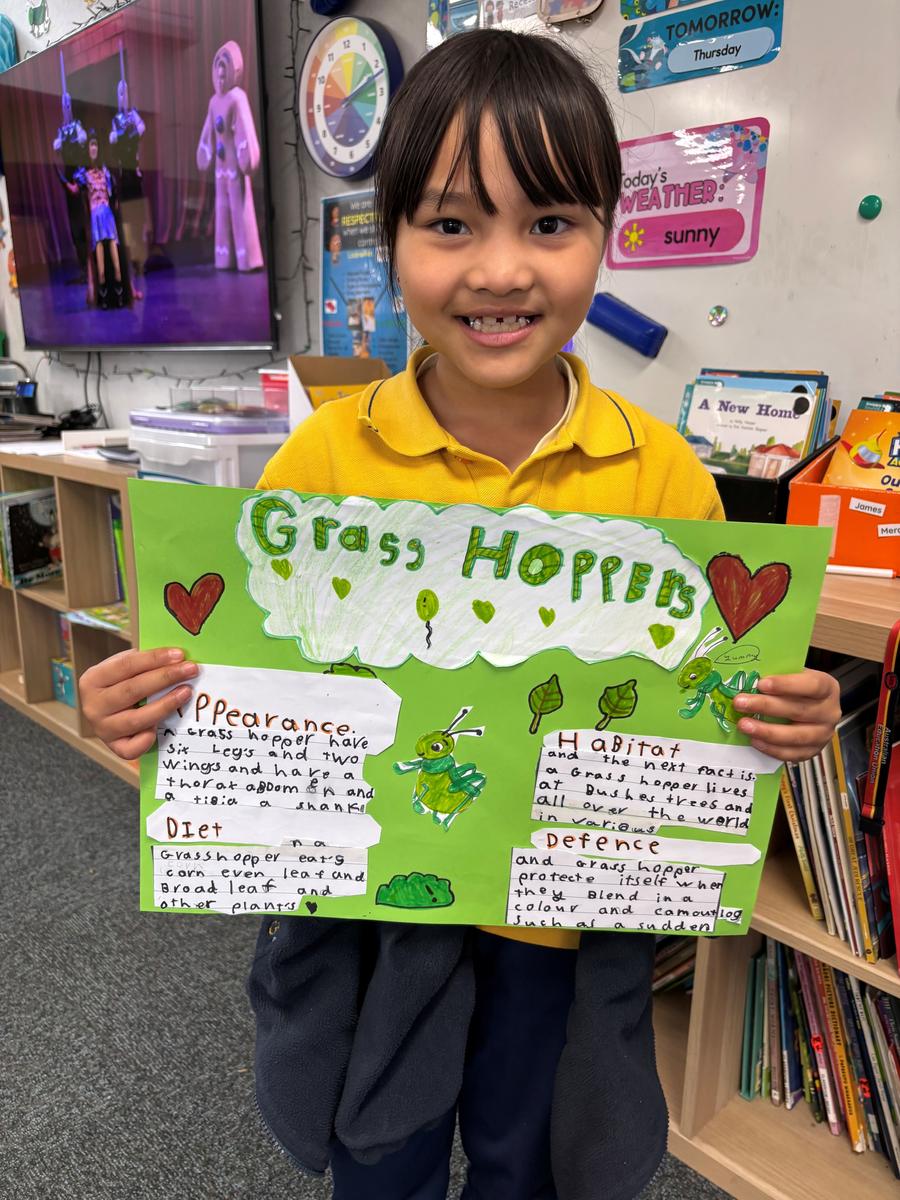 TOMORROW:
Thursday
Today's
WEATHER:
sunny
We are
RESPECTFUL
A New Home
James
Grass Hoppers
Yummy
Appearance.
A Grass hopper have
six Legs and two
wings and have a
thorat aBDomen and
a tibia a shank
DIet
n a
Grasshopper eats
corn even leaf and
Broad leaf and
other plants
HaBitat
and the next fact is.
a Grass hopper lives
at Bushes trees and
all over the world
in various
Defence
and Grass hopper
protecte itself when
they Blend in a
colour and camoutlog
such as a sudden
Australian
Education Union
12
1
2
3
4
5
6
7
8
9
10
11